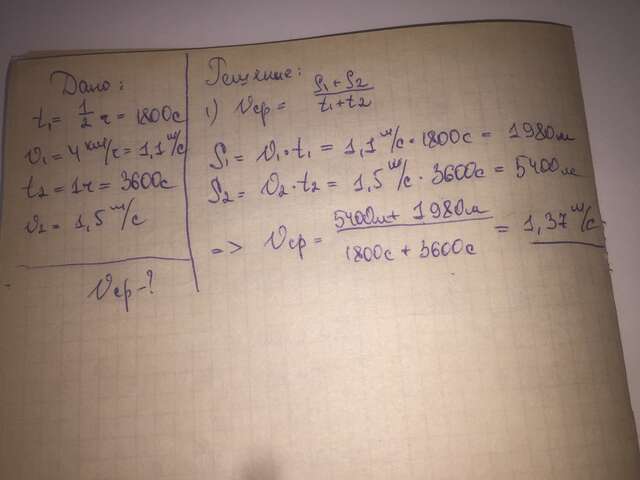 Дано:
t₁ = 1/2 ч = 1800с
v₁ = 4 км/ч = 1,1 м/с
t₂ = 1ч = 3600с
v₂ = 1,5 м/с
vср - ?
Решение:
1) vср = S₁ + S₂ / t₁ + t₂
S₁ = v₁ · t₁ = 1,1 м/с · 1800с = 1980м
S₂ = v₂ · t₂ = 1,5 м/с · 3600с = 5400м
=> vср = 5400м + 1980м / 1800с + 3600с = 1,37 м/с